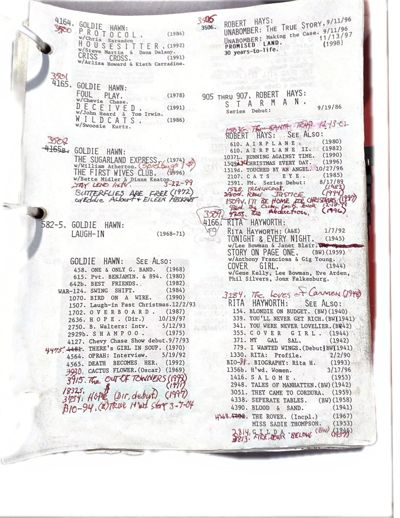 4164. GOLDIE HAWN:
P R O T O C O L. (1984)
w/Chris Sarandon
H O U S E S I T T E R. (1992)
w/Steve Martin & Dana Delany.
CRISS CROSS. (1991)
w/Arliss Howard & Kieth Carradine.
4165. GOLDIE HAWN:
FOUL PLAY. (1978)
w/Chevie Chase.
D E C E I V E D. (1991)
w/John Heard & Tom Irwin.
W I L D C A T S. (1986)
w/Swoosie Kurtz.
4165a. GOLDIE HAWN:
THE SUGARLAND EXPRESS. (1974)
w/William Atherton.
THE FIRST WIVES CLUB. (1996)
w/Bette Midler & Diane Keaton.
JAY LENO INTV. 3-22-99
BUTTERFLIES ARE FREE (1972)
w/Eddie Albert + EILEEN HECKART
582-5. GOLDIE HAWN:
LAUGH-IN (1968-71)
GOLDIE HAWN: SEE ALSO:
458. ONE & ONLY G. BAND. (1968)
615. Pvt. BENJAMIN. & 894. (1980)
642b. BEST FRIENDS. (1982)
WAR-124. SWING SHIFT. (1984)
1070. BIRD ON A WIRE. (1990)
1507. Laugh-in Past Christmas.12/2/93
1702. O V E R B O A R D. (1987)
2636. H O P E. (Dir.) 10/19/97
2750. B. Walters: Intv. 5/12/93
2929b. S H A M P O O. (1975)
4127. Chevy Chase Show debut.9/7/93
THERE'S A GIRL IN SOUP. (1970)
4564. OPRAH: Interview. 5/19/92
4565. DEATH BECOMES HER. (1992)
4920. CACTUS FLOWER.(Oscar) (1969)
3915. The OUT-OF-TOWNERS (1999)
3954. HOPE (Dir. debut) (1997)
3506. ROBERT HAYS:
UNABOMBER: The TRUE STORY,9/11/96
UNABOMBER: Making the Case. 9/11/96
PROMISED LAND. (1998)
30-years-to-life.
905 THRU 907. ROBERT HAYS:
S T A R M A N.
Series Debut: 9/19/86
ROBERT HAYS: SEE ALSO:
610. A I R P L A N E. (1980)
610. A I R P L A N E II. (1982)
1037L. RUNNING AGAINST TIME. (1990)
CHRISTMAS STORY DAY. (1996)
1519b. TOUCHED BY AN ANGEL. 10/27/96
2107. CATS EYE. (1985)
2591. FM. Series Debut: 8/17/89
4166. RITA HAYWORTH:
Rita HAYWORTH: (A&E) 1/7/92
TONIGHT & EVERY NIGHT. (1945)
w/Lee Bowman & Janet Blair.
STORY ON PAGE ONE. (BW)(1959)
w/Anthony Franciosa & Gig Young.
COVER GIRL. (1944)
w/Gene Kelly, Lee Bowman, Eve Arden,
Phil Silvers, Jonx Falkenburg.
3184. The Loves of Carmen (1948)
RITA HAYWORTH: SEE ALSO:
154. BLONDIE ON BUDGET. (BW)(1940)
339. YOU'LL NEVER GET RICH.(BW)(1941)
341. YOU WERE NEVER LOVELIER.(BW)(1942)
355. C O V E R G I R L. (1944)
371. MY GAL SAL. (1942)
779. I WANTED WINGS.(Debut)(BW)(1941)
1330. RITA: Profile. 2/2/90
BIO-31. BIOGRAPHY: Rita H. (1993)
1356b. H'wd. Women. 3/17/96
1416. S A L O M E. (1953)
2948. TALES OF MANHATTAN.(BW)(1942)
3051. THEY CAME TO CORDURA. (1959)
4338. SEPERATE TABLES. (BW)(1958)
4390. BLOOD & SAND. (1941)
THE ROVER. (Incpl.) (1967)
MISS SADIE THOMPSON. (1953)
2814. G I L D A. (BW)(1946)
3213. FIRE DOWN BELOW (1957)